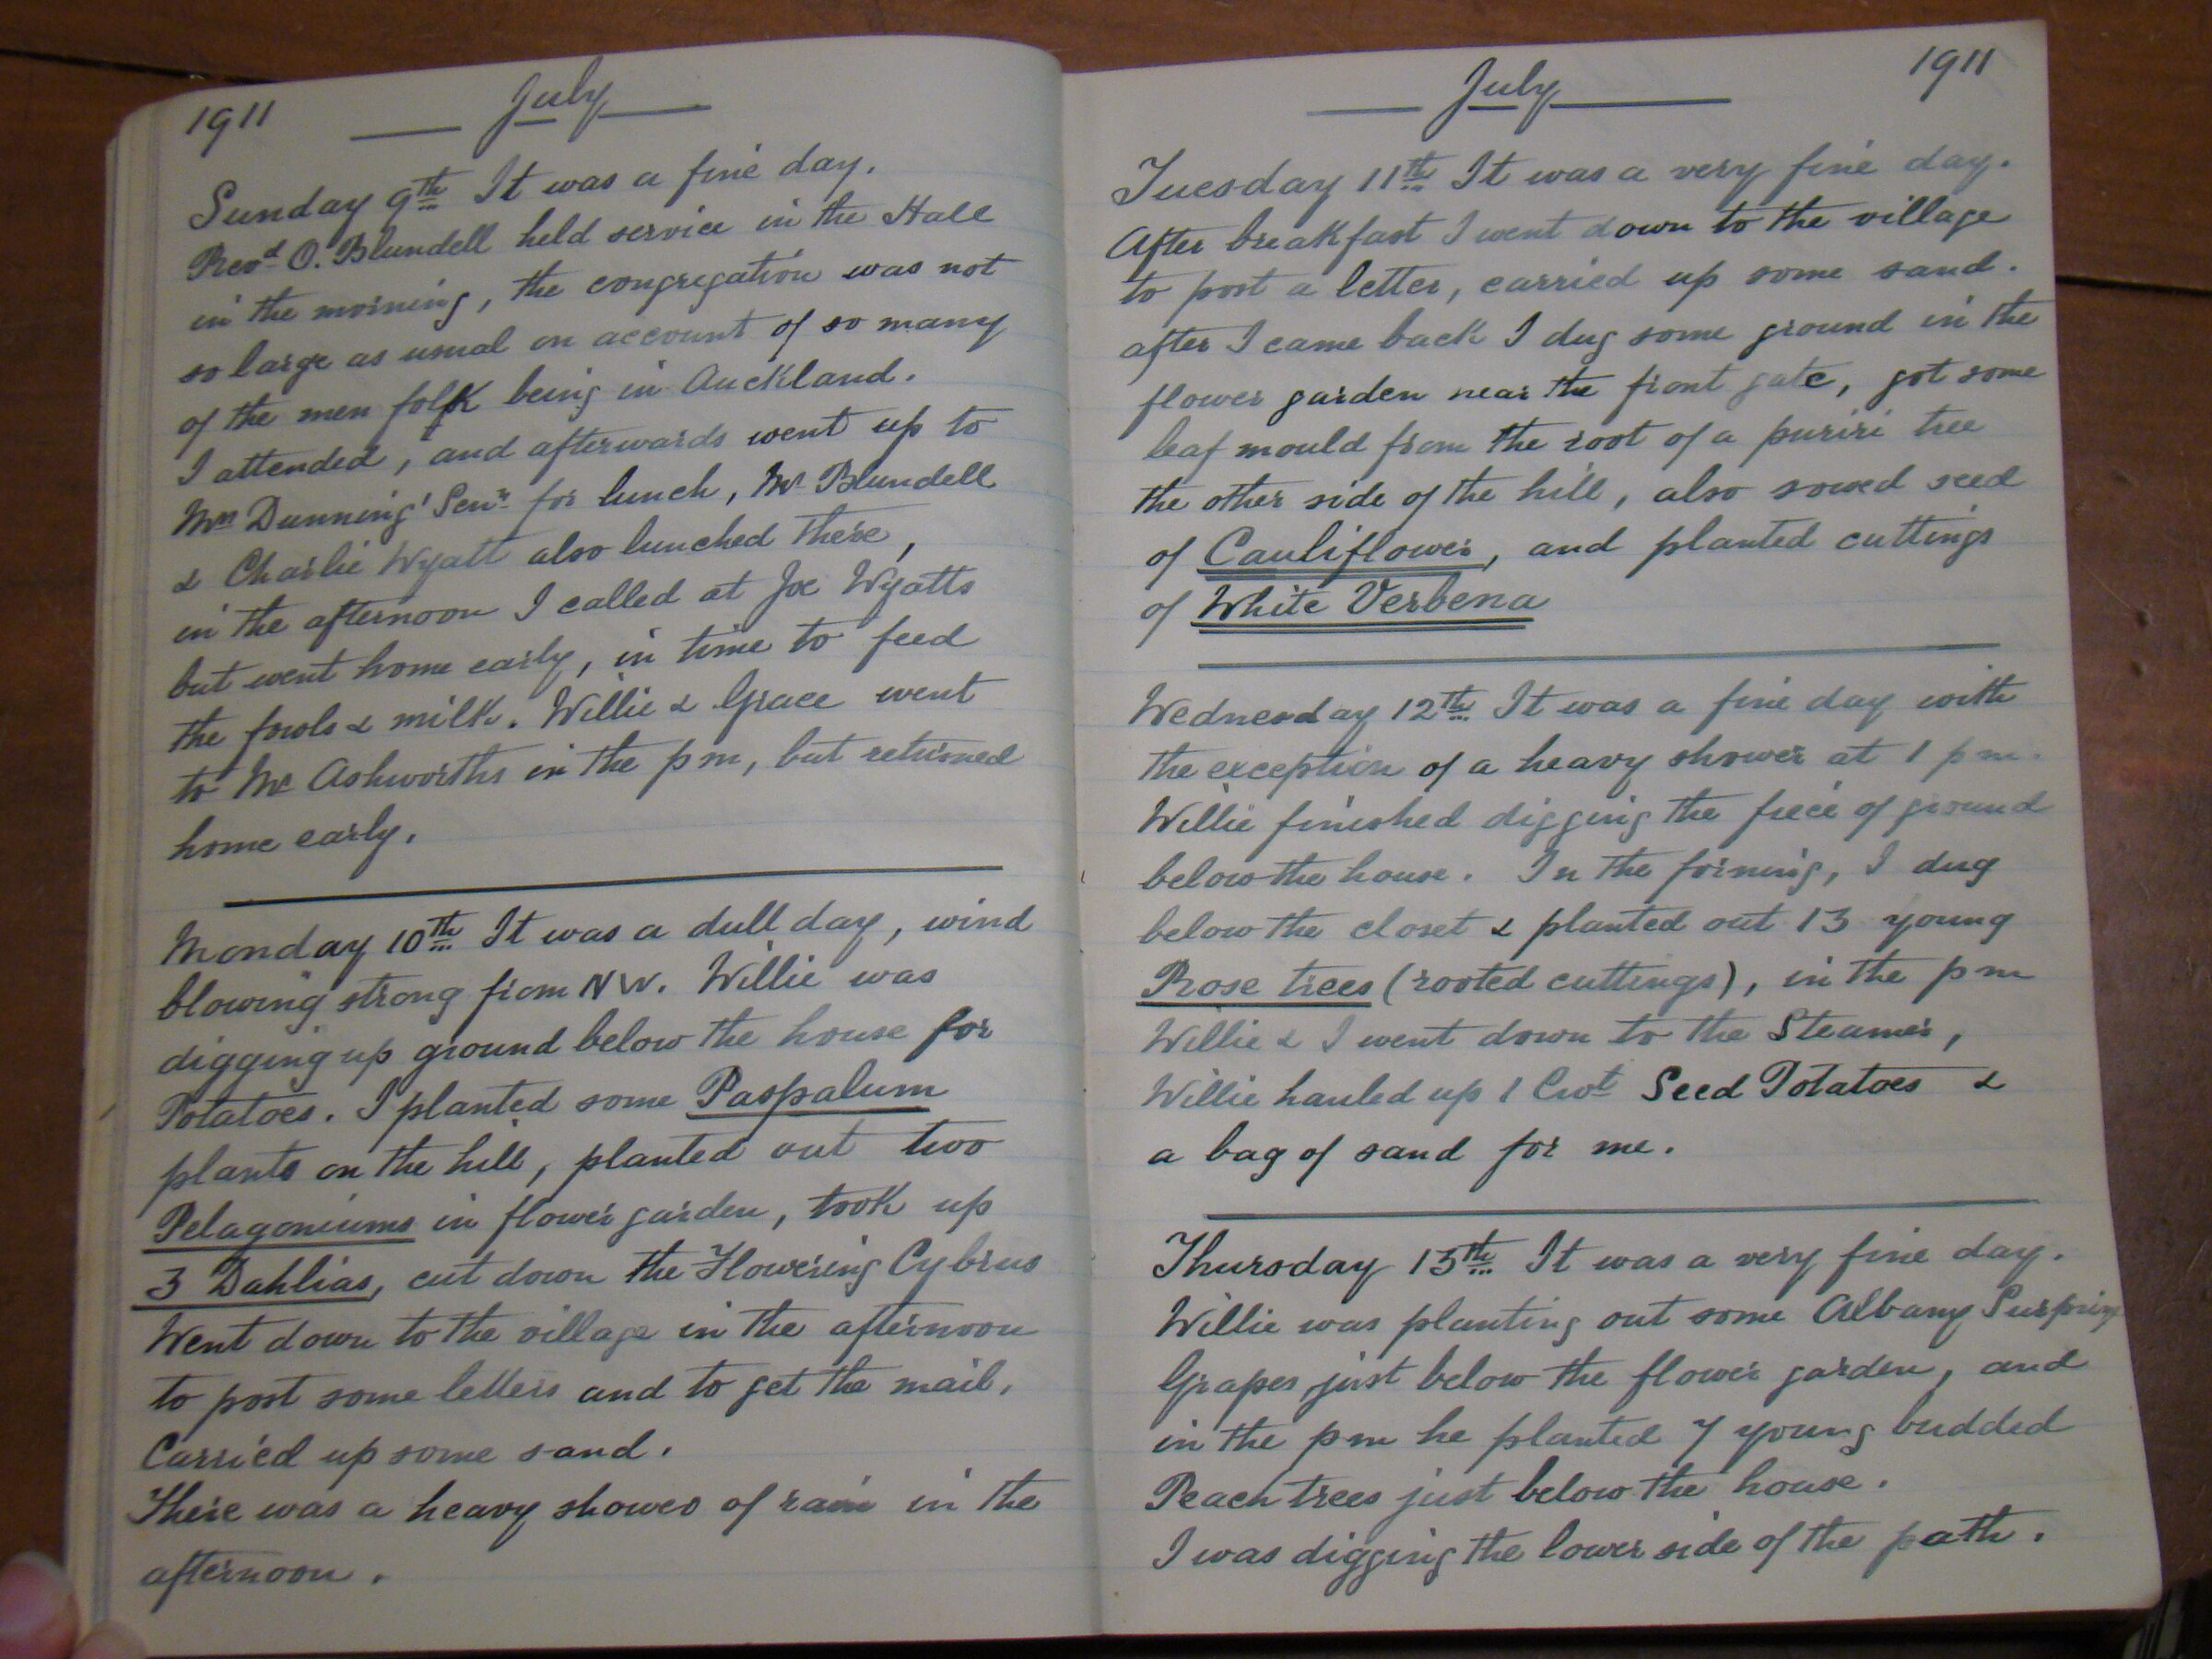 1911 July
Sunday 9th It was a fine day.
Revd O. Blundell held service in the Hall
in the morning, the congregation was not
so large as usual on account of so many
of the men folk being in Auckland.
I attended, and afterwards went up to
Mrs Dunning' Senr for lunch, Mr Blundell
& Charlie Wyatt also lunched there,
in the afternoon I called at Joe Wyatts
but went home early, in time to feed
the fowls & milk. Willie & Grace went
to Mr Ashworths in the pm, but returned
home early.
Monday 10th It was a dull day, wind
blowing strong from NW. Willie was
digging up ground below the house for
Potatoes. I planted some Paspalum
plants on the hill, planted out two
Pelagoniums in flower garden, took up
3 Dahlias, cut down the Flowering Cybrus
Went down to the village in the afternoon
to post some letters and to get the mail.
Carried up some sand.
There was a heavy shower of rain in the
afternoon.
July 1911
Tuesday 11th It was a very fine day.
After breakfast I went down to the village
to post a letter, carried up some sand.
after I came back I dug some ground in the
flower garden near the front gate, got some
leaf mould from the root of a puriri tree
the other side of the hill, also sowed seed
of Cauliflower, and planted cuttings
of White Verbena
Wednesday 12th It was a fine day with
the exception of a heavy shower at 1 pm.
Willie finished digging the piece of ground
below the house. In the forning, I dug
below the closet & planted out 13 young
Rose trees (rooted cuttings), in the pm
Willie & I went down to the Steamer,
Willie hauled up 1 Cwt Seed Potatoes &
a bag of sand for me.
Thursday 13th It was a very fine day.
Willie was planting out some Albany Surprise
Grapes just below the flower garden, and
in the pm he planted 7 young budded
Peach trees just below the house.
I was digging the lower side of the path.